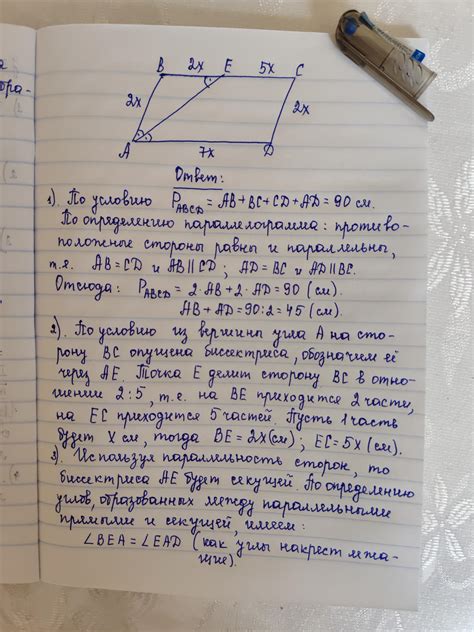 B 2x E 5x C
2x 2x
A 7x D
Ответ:
1). По условию P_ABCD = AB + BC + CD + AD = 90 см.
По определению параллелограмма: противо-
положные стороны равны и параллельны,
т.е. AB = CD и AB || CD ; AD = BC и AD || BC.
Отсюда: P_ABCD = 2·AB + 2·AD = 90 (см).
AB + AD = 90:2 = 45 (см).
2). По условию из вершины угла A на сто-
рону BC опущена биссектриса, обозначим её
через AE. Точка E делит сторону BC в отно-
шении 2:5, т.е. на BE приходится 2 части,
на EC приходится 5 частей. Пусть 1 часть
будет x см, тогда BE = 2x (см); EC = 5x (см).
3) Используя параллельность сторон, то
биссектриса AE будет секущей. По определению
углов, образованных между параллельными
прямыми и секущей, имеем:
∠BEA = ∠EAD (как углы накрест лежа-
щие).